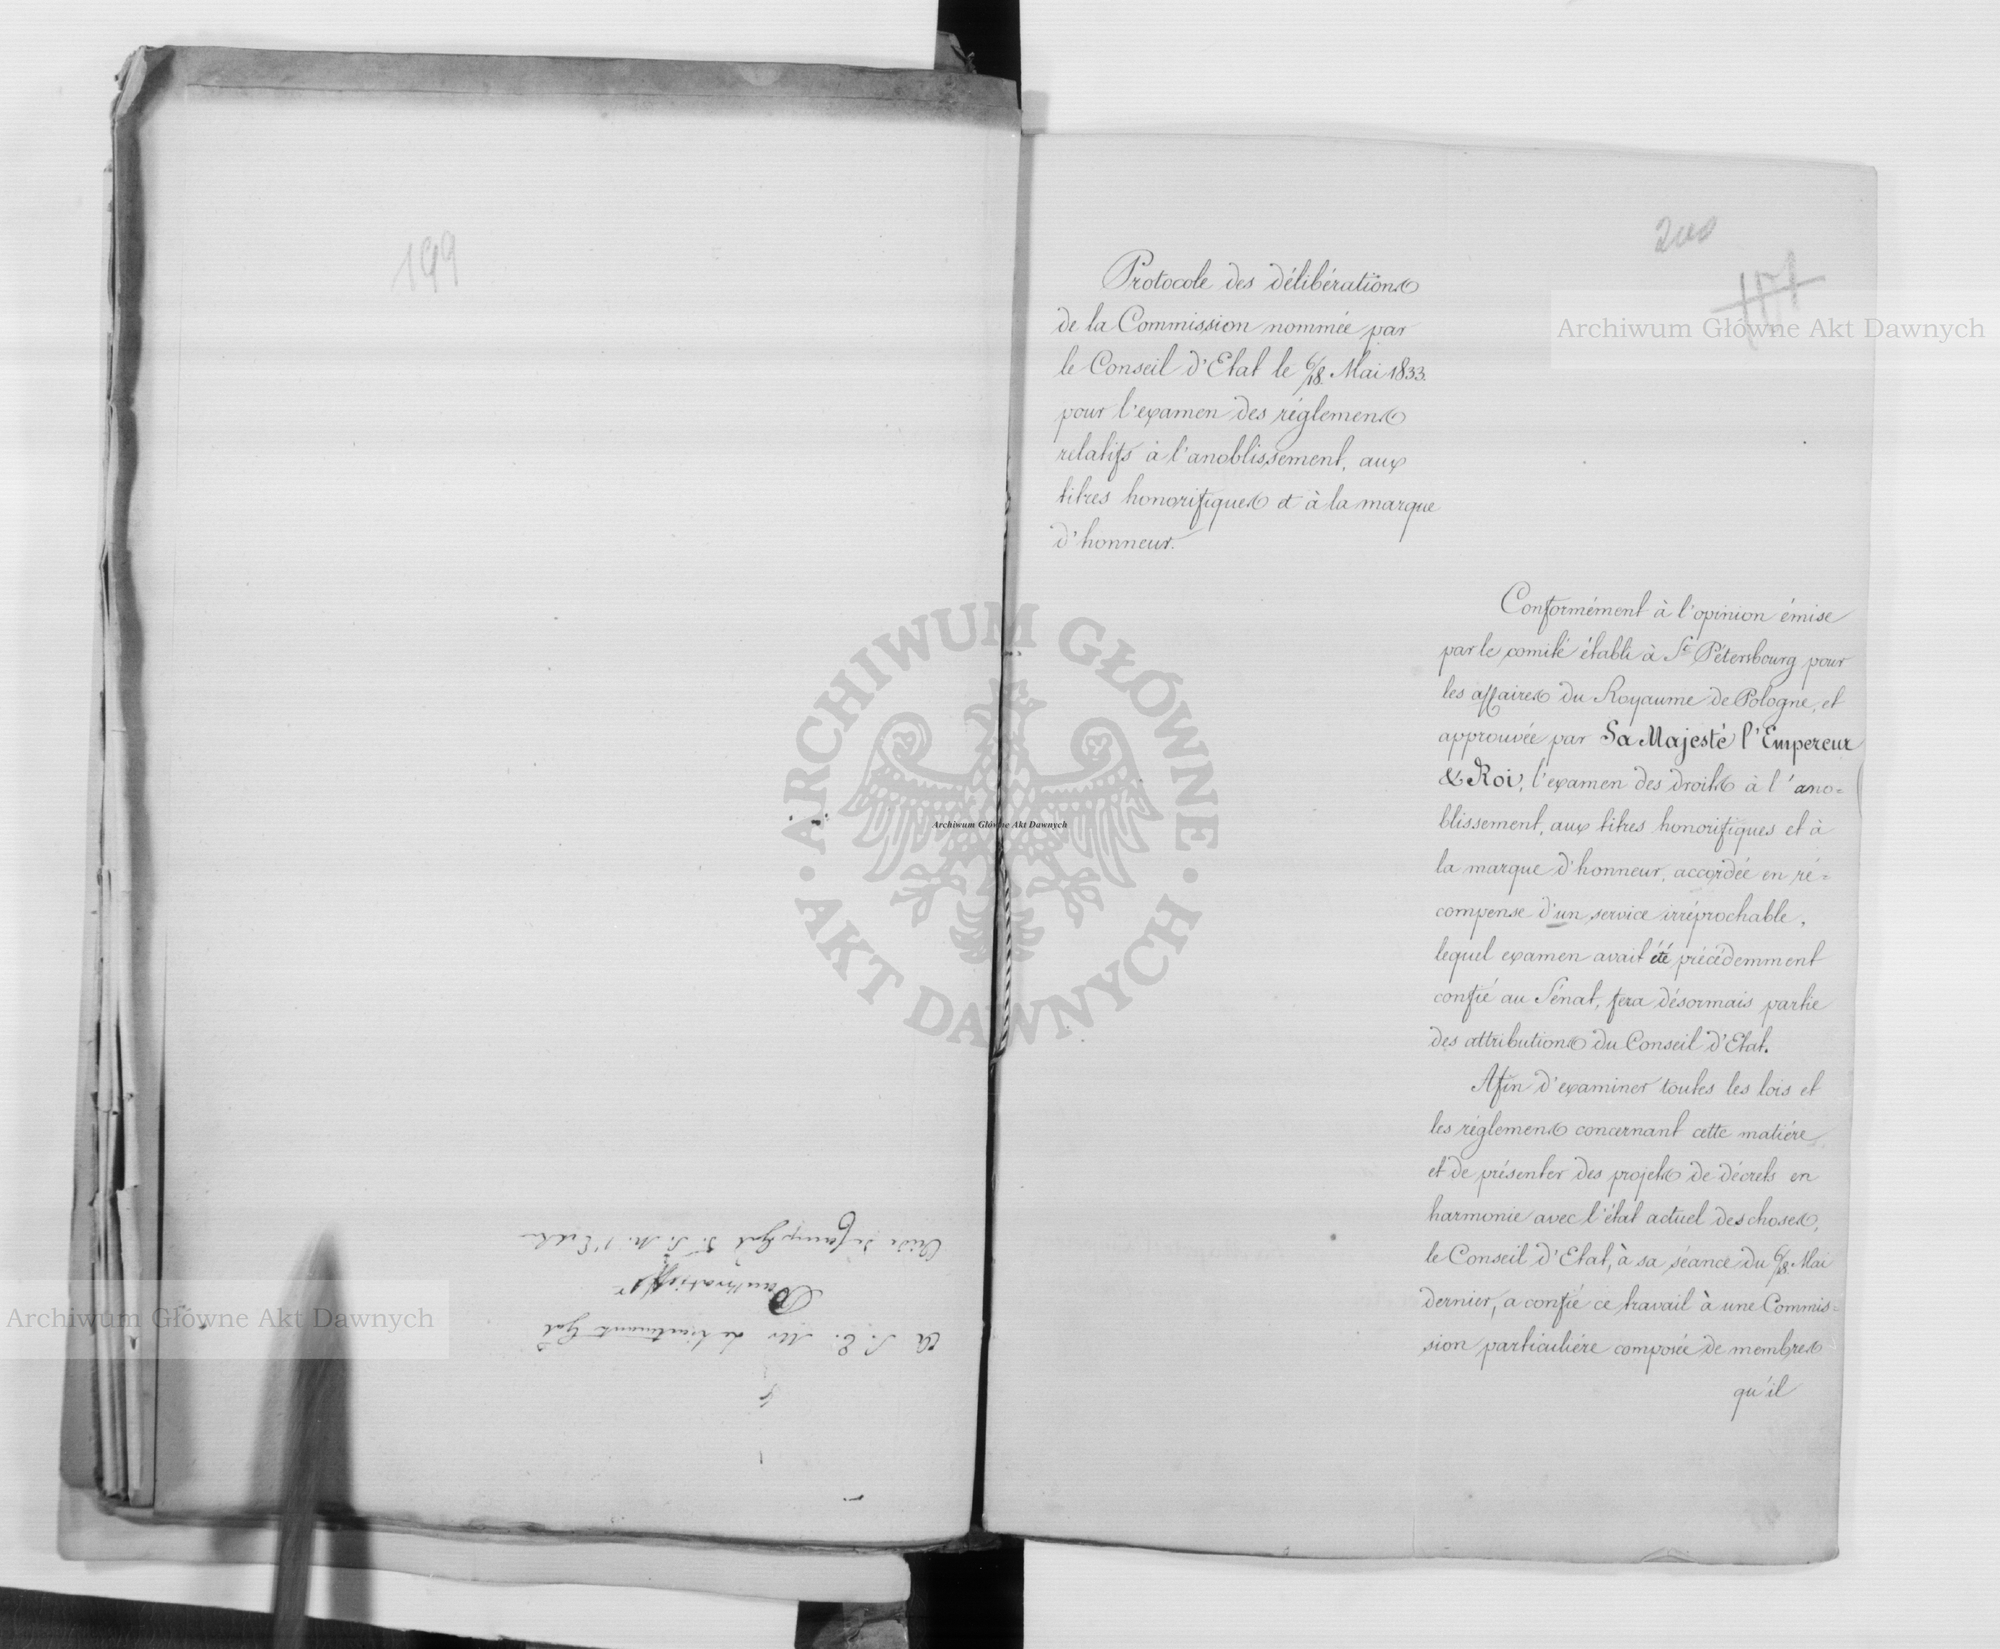 199
A S. E. Mr le Lieutenant Gal
Aide de Camp Gal d. S. M. l'
200
Protocole des délibérations
de la Commission nommée par
le Conseil d'Etat le 6/18. Mai 1833.
pour l'examen des réglemens
relatifs à l'anoblissement, aux
titres honorifiques et à la marque
d'honneur.
Conformément à l'opinion émise
par le comité établi à St Pétersbourg pour
les affaires du Royaume de Pologne, et
approuvée par Sa Majesté l'Empereur
& Roi, l'examen des droits à l'ano=
blissement, aux titres honorifiques et à
la marque d'honneur, accordée en ré=
compense d'un service irréprochable,
lequel examen avait été précédemment
confié au Sénat, fera désormais partie
des attributions du Conseil d'Etat.
Afin d'examiner toutes les lois et
les réglemens concernant cette matiére
et de présenter des projets de décrets en
harmonie avec l'état actuel des choses,
le Conseil d'Etat, à sa séance du 6/18. Mai
dernier, a confié ce travail à une Commis=
sion particuliére composée de membres
qu'il
Archiwum Główne Akt Dawnych
Archiwum Główne Akt Dawnych
Archiwum Główne Akt Dawnych
ARCHIWUM GŁÓWNE
AKT DAWNYCH